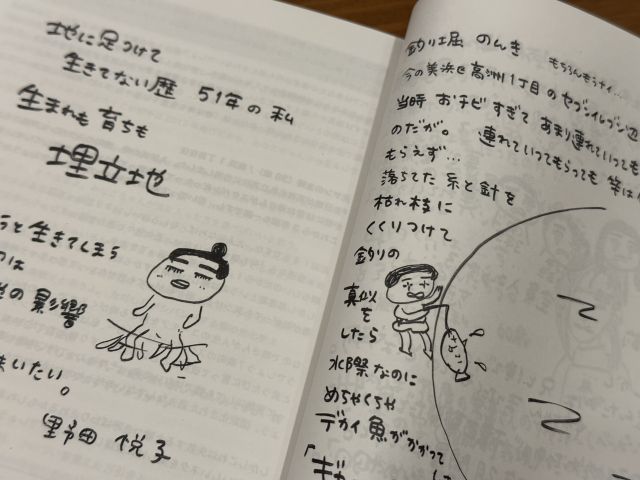 地に足つけて
生きてない歴 51年の私
生まれも育ちも
埋立地
うと生きてしまう
のは
の影響
いたい。
野田 悦子
釣り堀 のんき もちろんもうナイ…
今の美浜区高洲1丁目のセブンイレブン辺
当時 おチビすぎて あまり連れていっても
のだが。 連れていってもらっても 竿は
もらえず…
落ちてた 糸と針を
枯れ枝に
くくりつけて
釣りの
真似
を
したら
水際なのに
めちゃくちゃ
デカイ魚がかかって
「ギ